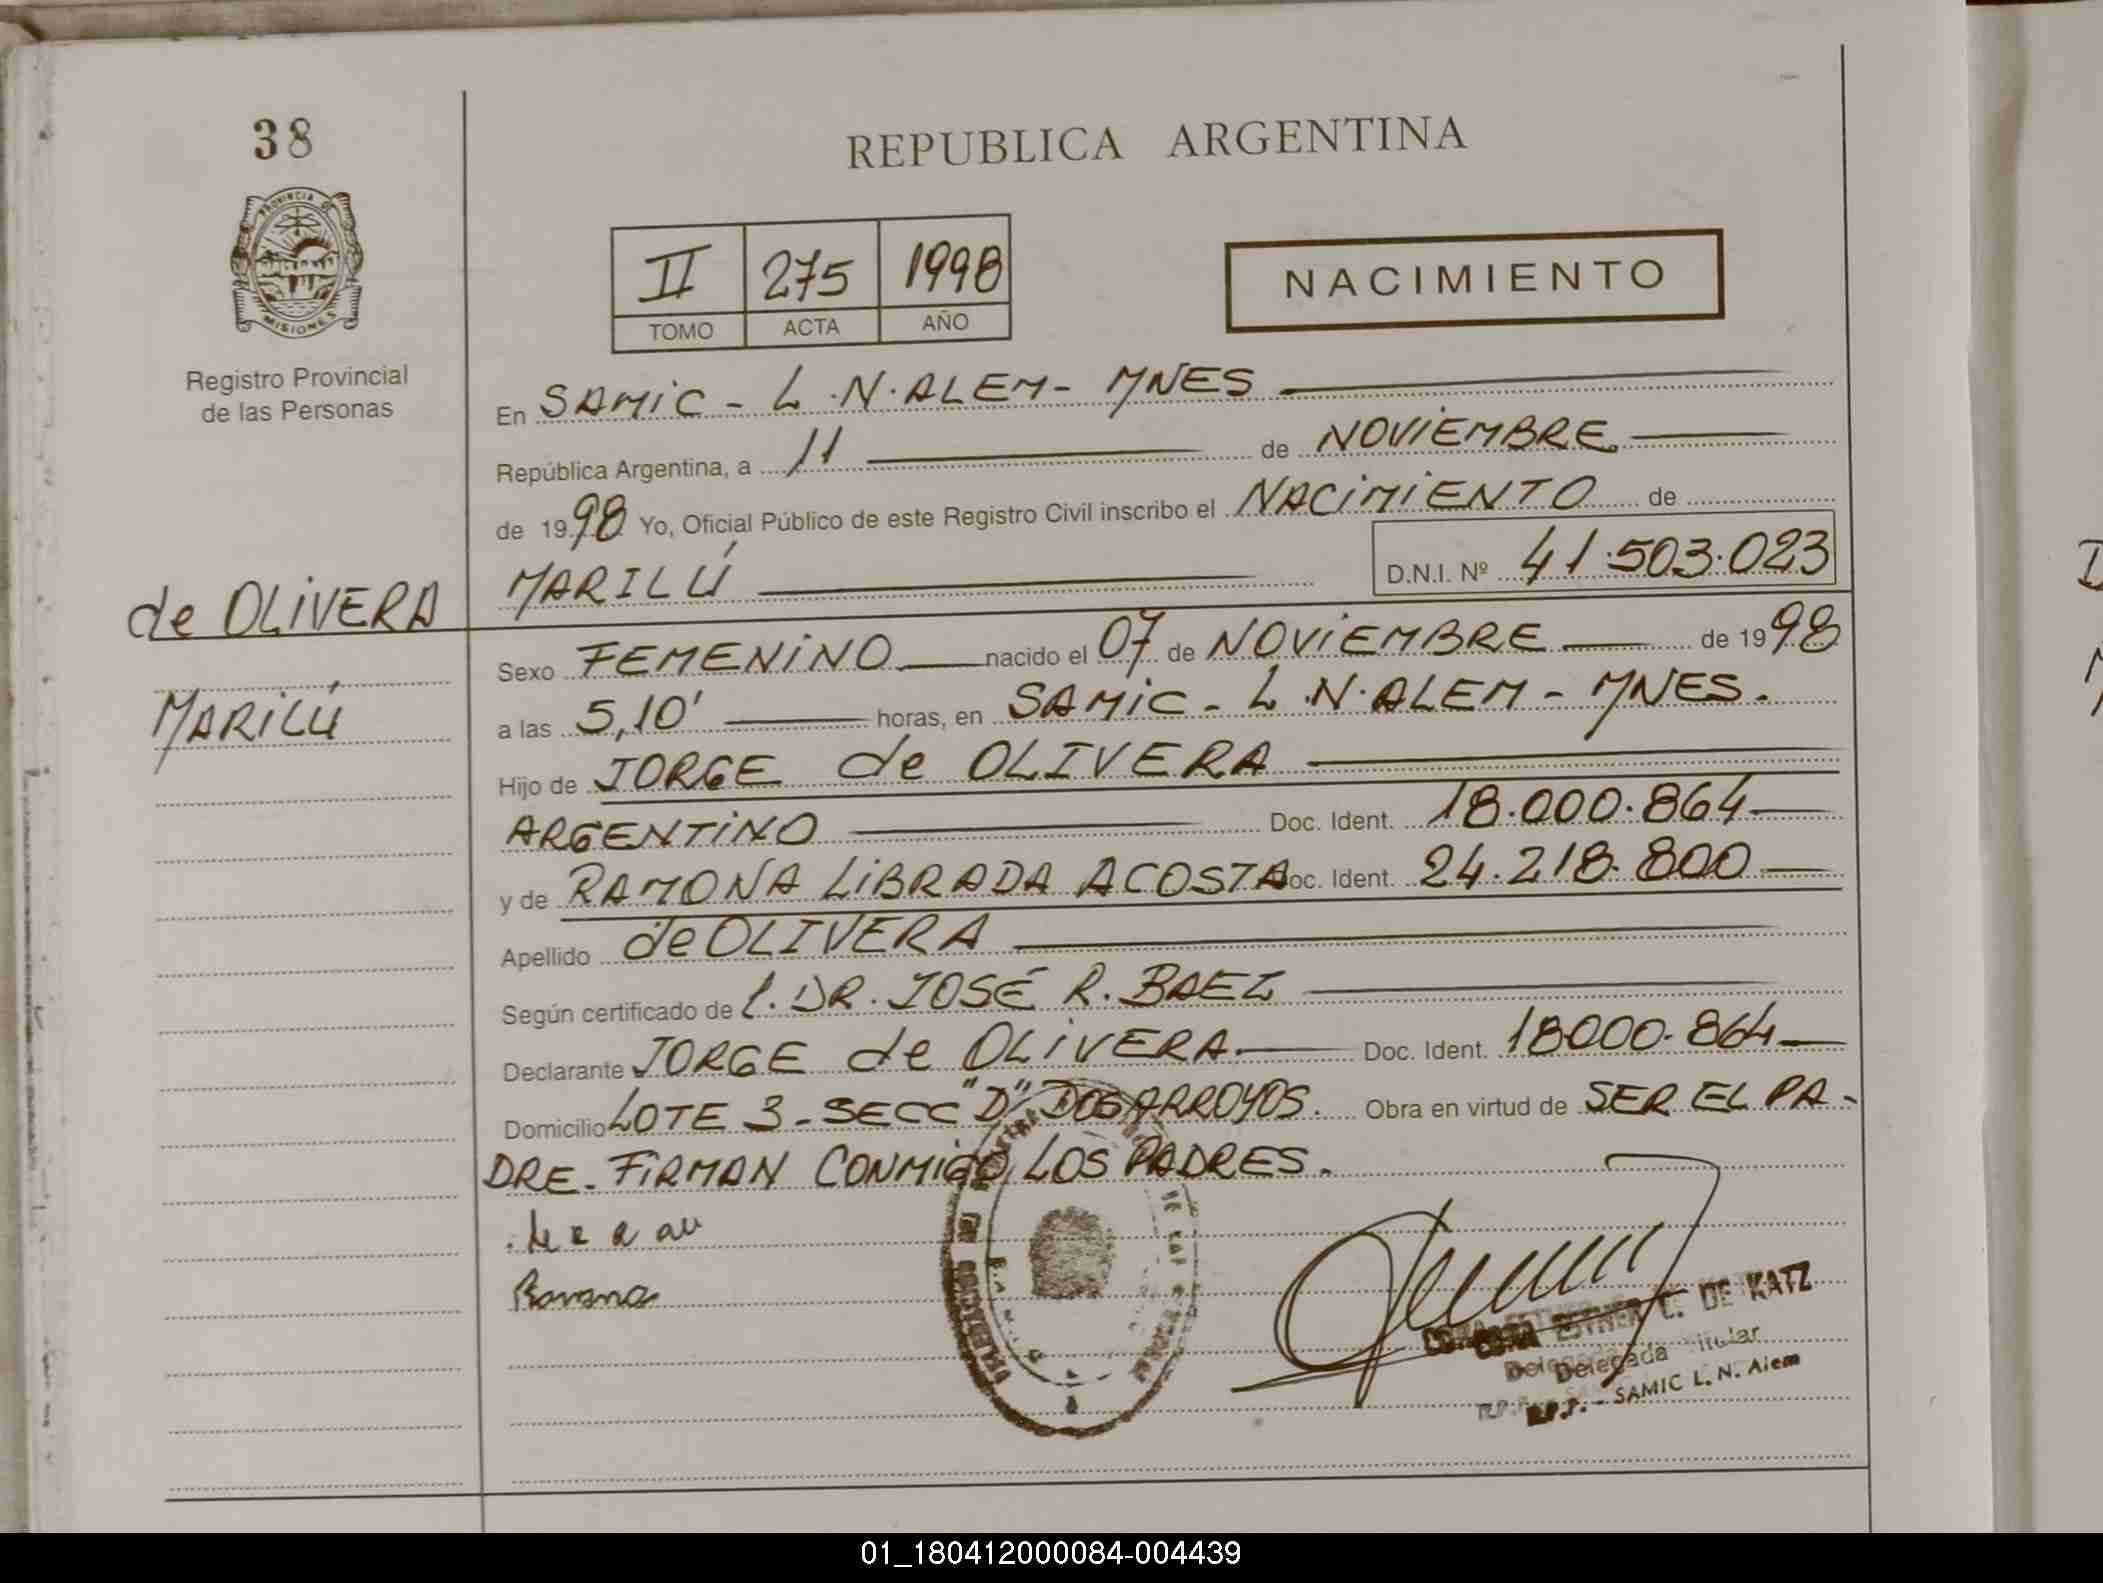 38
REPUBLICA ARGENTINA
PROVINCIA DE
MISIONES
Registro Provincial
de las Personas
II 275 1998
TOMO ACTA AÑO
NACIMIENTO
En SAMIC - L.N.ALEM- MNES
República Argentina, a 11 de NOVIEMBRE
de 1998 Yo, Oficial Público de este Registro Civil inscribo el NACIMIENTO de
MARILÚ D.N.I. Nº 41.503.023
de OLIVERA
MARILÚ
Sexo FEMENINO nacido el 07 de NOVIEMBRE de 1998
a las 5,10' horas, en SAMIC - L.N.ALEM - MNES.
Hijo de JORGE de OLIVERA
ARGENTINO Doc. Ident. 18.000.864
y de RAMONA LIBRADA ACOSTA Doc. Ident. 24.218.800
Apellido de OLIVERA
Según certificado de DR. JOSÉ R. BAEZ
Declarante JORGE de OLIVERA Doc. Ident. 18000.864
Domicilio LOTE 3 - SECC "D" DOS ARROYOS. Obra en virtud de SER EL PA-
DRE - FIRMAN CONMIGO LOS PADRES.
Ramona
ESTHER C. DE KATZ
Delegada Titular
R.P.P. - SAMIC L. N. Alem
01_180412000084-004439